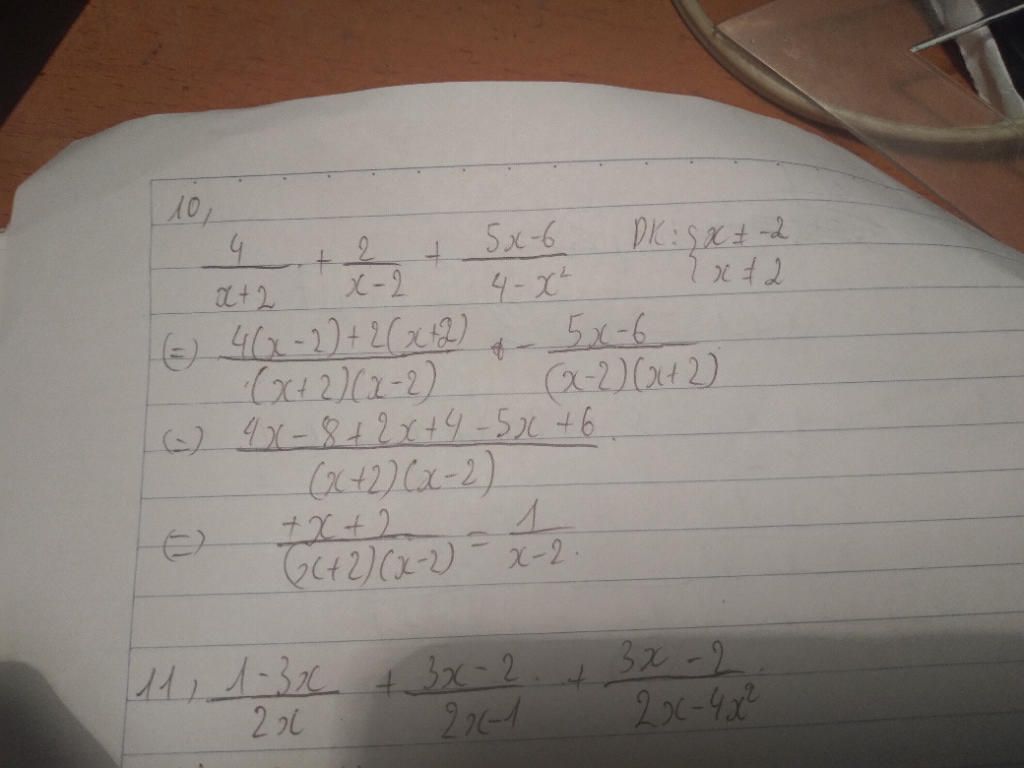 10,
4/(x+2) + 2/(x-2) + (5x-6)/(4-x²) ĐK: { x ≠ -2
{ x ≠ 2
(=) (4(x-2)+2(x+2))/((x+2)(x-2)) - (5x-6)/((x-2)(x+2))
(=) (4x-8+2x+4-5x+6)/((x+2)(x-2))
(=) (+x+2)/((x+2)(x-2)) = 1/(x-2).
11, (1-3x)/(2x) + (3x-2)/(2x-1) + (3x-2)/(2x-4x²)